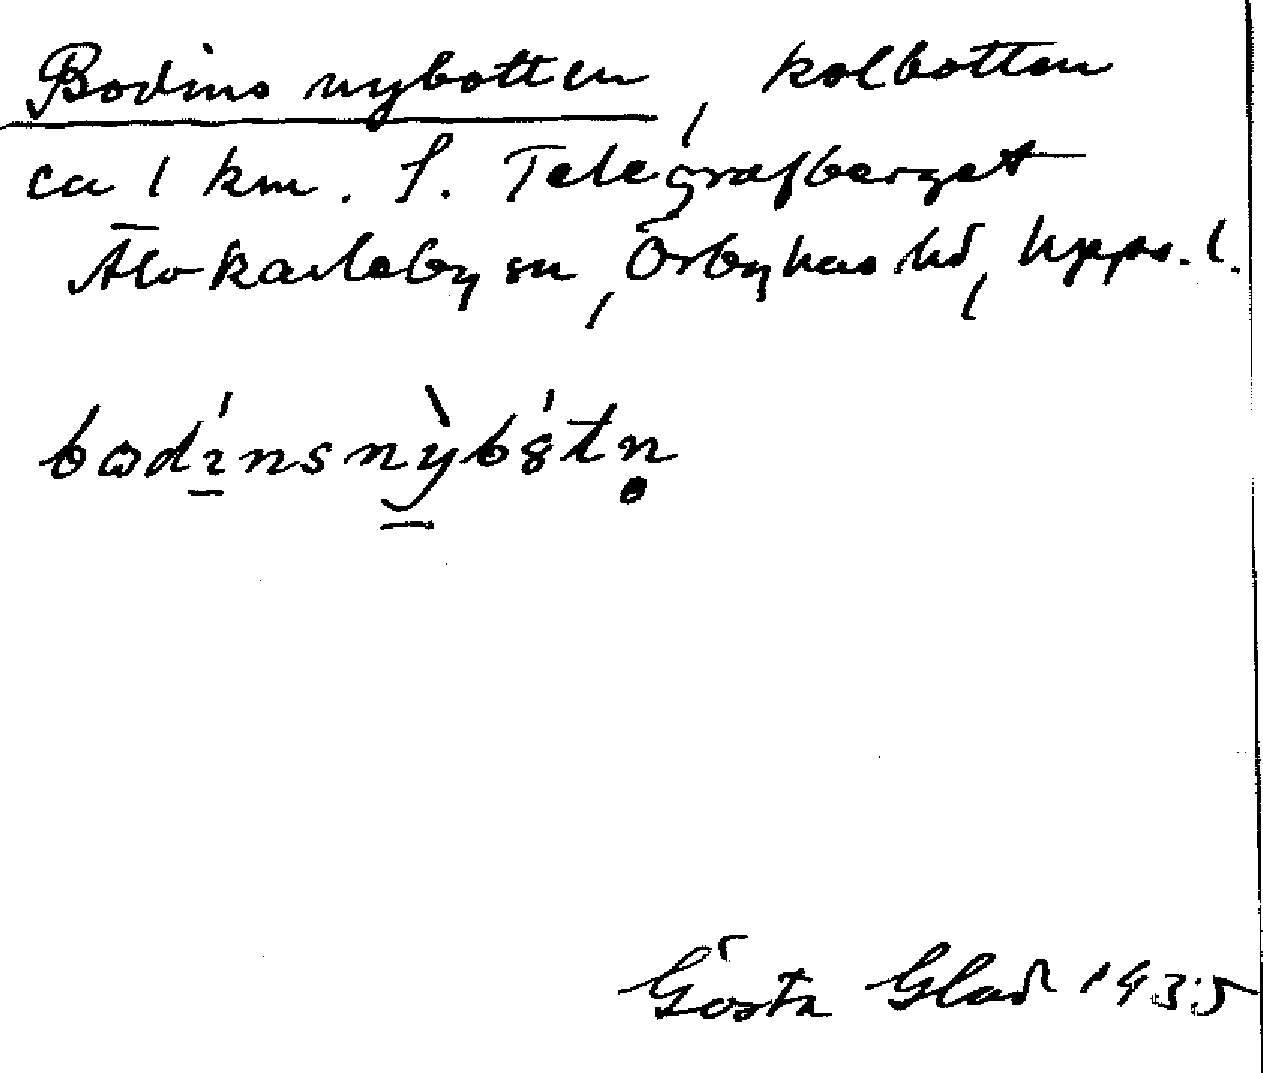 Bodins nybotten, kolbotten
ca 1 km. S. Telegrafberget
Älvkarleby sn, Örbyhus hd, Upps. l.
bodínsnỳbótn̥
Gösta Glad 1935